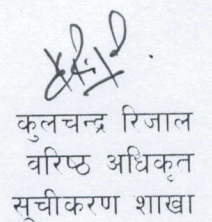 कुलचन्द्र रिजाल
वरिष्ठ अधिकृत
सूचीकरण शाखा